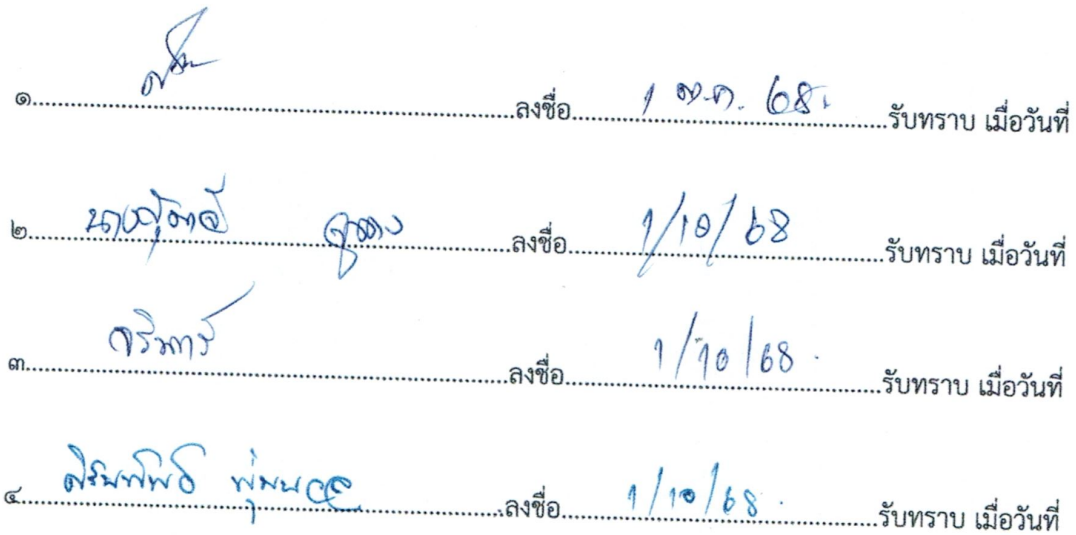 ๑.......... ลงชื่อ.......... 1 ต.ค. 68. ..........รับทราบ เมื่อวันที่
๒.......... ลงชื่อ.......... 1/10/68 ..........รับทราบ เมื่อวันที่
๓.......... ลงชื่อ.......... 1/10/68. ..........รับทราบ เมื่อวันที่
๔.......... พุ่มนวล ..........ลงชื่อ.......... 1/10/68. ..........รับทราบ เมื่อวันที่